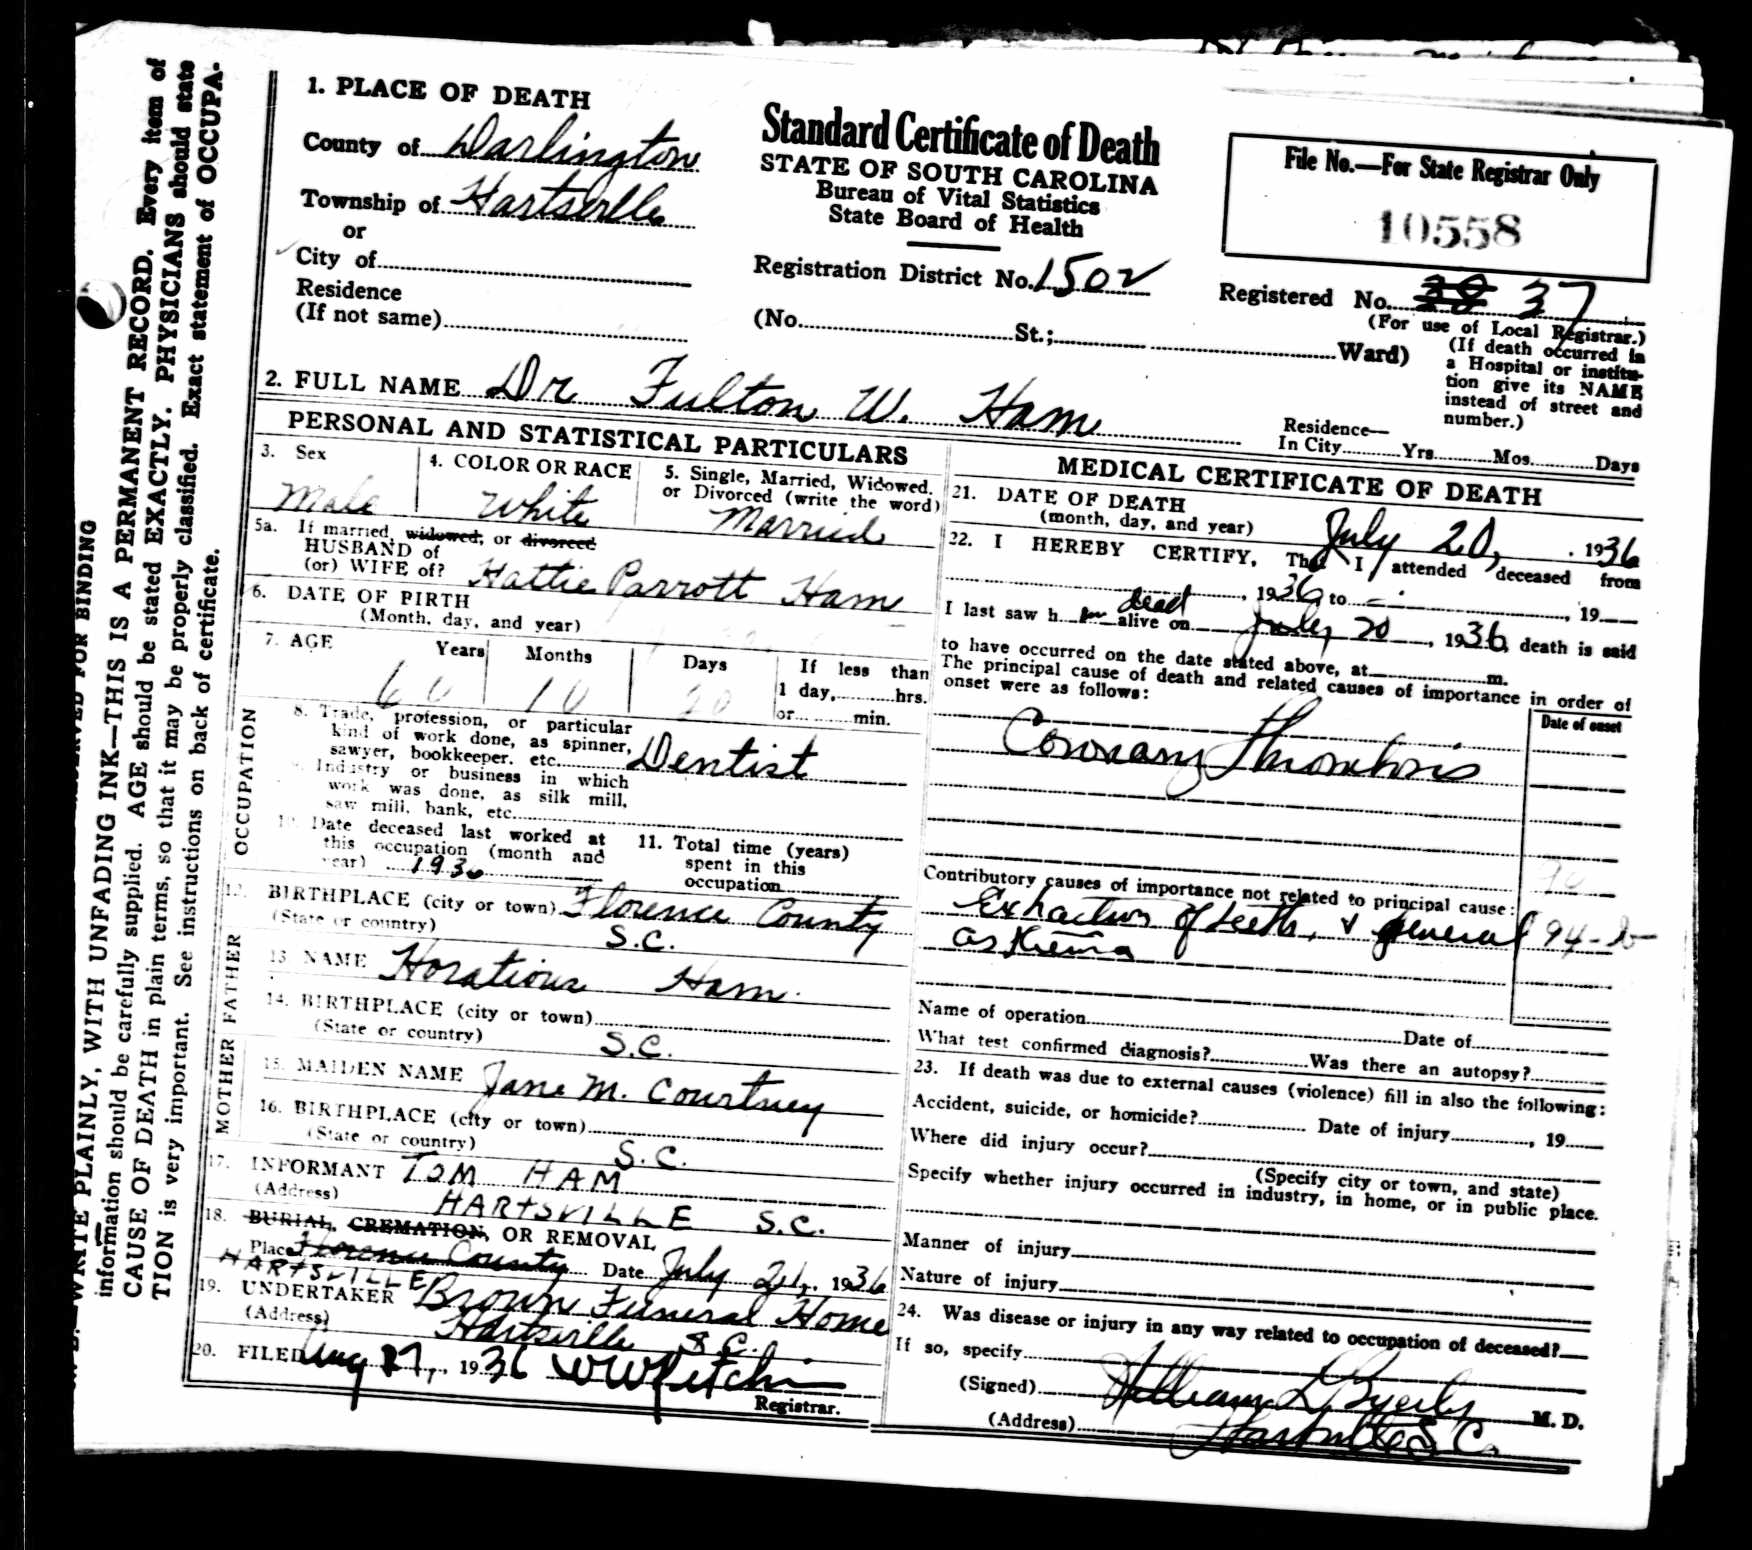 1. PLACE OF DEATH
County of Darlington
Township of Hartsville
or
City of
Residence
(If not same)
Standard Certificate of Death
STATE OF SOUTH CAROLINA
Bureau of Vital Statistics
State Board of Health
Registration District No. 1502
(No. St.; Ward)
File No.—For State Registrar Only
10558
Registered No. 37
(For use of Local Registrar.)
(If death occurred in
a Hospital or institu-
tion give its NAME
instead of street and
number.)
2. FULL NAME Dr Fulton W. Ham
Residence—
In City Yrs Mos. Days
PERSONAL AND STATISTICAL PARTICULARS
3. Sex
Male
4. COLOR OR RACE
White
5. Single, Married, Widowed,
or Divorced (write the word)
Married
5a. If married, widowed, or divorced
HUSBAND of
(or) WIFE of? Hattie Parrott Ham
6. DATE OF BIRTH
(Month, day, and year)
7. AGE Years Months Days
10 20
If less than
1 day, hrs.
or min.
OCCUPATION
8. Trade, profession, or particular
kind of work done, as spinner,
sawyer, bookkeeper, etc. Dentist
Industry or business in which
work was done, as silk mill,
saw mill, bank, etc.
10. Date deceased last worked at
this occupation (month and
year) 1936
11. Total time (years)
spent in this
occupation
12. BIRTHPLACE (city or town) Florence County
(State or country) S.C.
FATHER
13 NAME Horatious Ham
14. BIRTHPLACE (city or town)
(State or country) S.C.
MOTHER
15. MAIDEN NAME Jane M. Courtney
16. BIRTHPLACE (city or town)
(State or country) S.C.
17. INFORMANT TOM HAM
(Address) HARTSVILLE S.C.
18. BURIAL, CREMATION, OR REMOVAL
Place Florence County Date July 21, 1936
HARTSVILLE
19. UNDERTAKER Brown Funeral Home
(Address) Hartsville S.C.
20. FILED Aug 17, 1936
Registrar.
MEDICAL CERTIFICATE OF DEATH
21. DATE OF DEATH
(month, day, and year) July 20, 1936
22. I HEREBY CERTIFY, That I attended deceased from
, 1936 to , 19
dead
I last saw h alive on July 20, 1936, death is said
to have occurred on the date stated above, at m.
The principal cause of death and related causes of importance in order of
onset were as follows:
Date of onset
Coronary Thrombosis
Contributory causes of importance not related to principal cause:
Extraction of teeth, & general 94-b
asthenia
Name of operation Date of
What test confirmed diagnosis? Was there an autopsy?
23. If death was due to external causes (violence) fill in also the following:
Accident, suicide, or homicide? Date of injury , 19
Where did injury occur?
(Specify city or town, and state)
Specify whether injury occurred in industry, in home, or in public place.
Manner of injury
Nature of injury
24. Was disease or injury in any way related to occupation of deceased?
If so, specify
(Signed) William L Byerly M. D.
(Address) Hartsville S C.
WRITE PLAINLY, WITH UNFADING INK—THIS IS A PERMANENT RECORD. Every item of
information should be carefully supplied. AGE should be stated EXACTLY. PHYSICIANS should state
CAUSE OF DEATH in plain terms, so that it may be properly classified. Exact statement of OCCUPA-
TION is very important. See instructions on back of certificate.